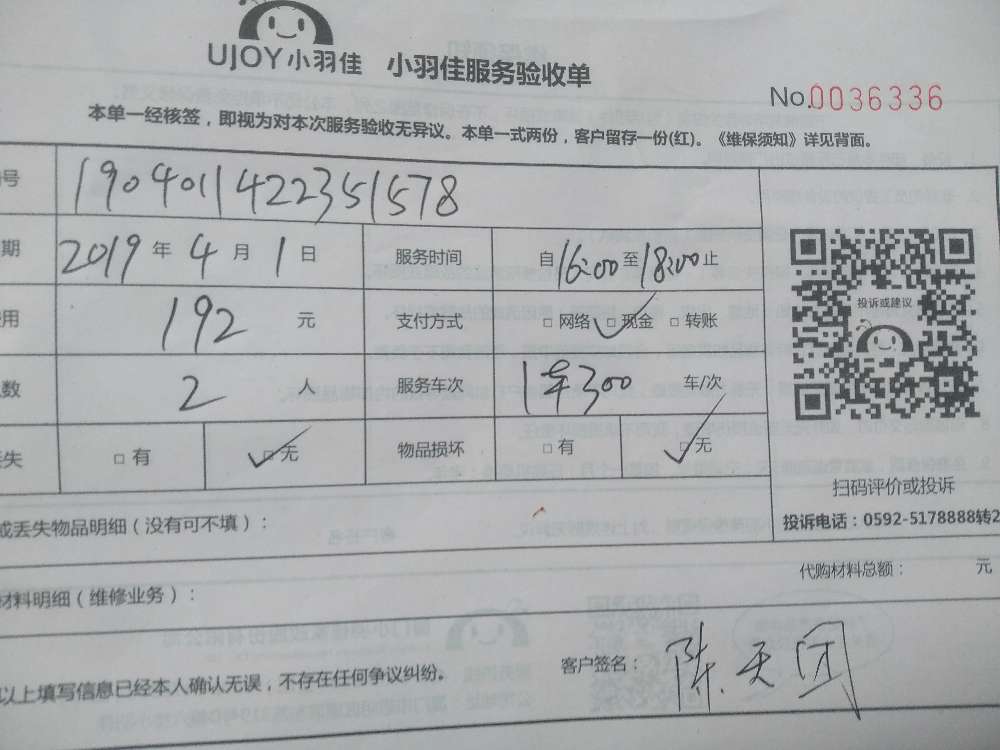 UJOY小羽佳 小羽佳服务验收单
No.0036336
本单一经核签，即视为对本次服务验收无异议。本单一式两份，客户留存一份(红)。《维保须知》详见背面。
号 1904011422351578
期 2019 年 4 月 1 日 服务时间 自16:00至18:00止
用 192 元 支付方式 □ 网络 □ 现金 □ 转账
数 2 人 服务车次 1车300 车/次
失 □ 有 □ 无 物品损坏 □ 有 □ 无
投诉或建议
扫码评价或投诉
投诉电话：0592-5178888转2
或丢失物品明细（没有可不填）：
代购材料总额： 元
材料明细（维修业务）：
以上填写信息已经本人确认无误，不存在任何争议纠纷。
客户签名： 陈天团